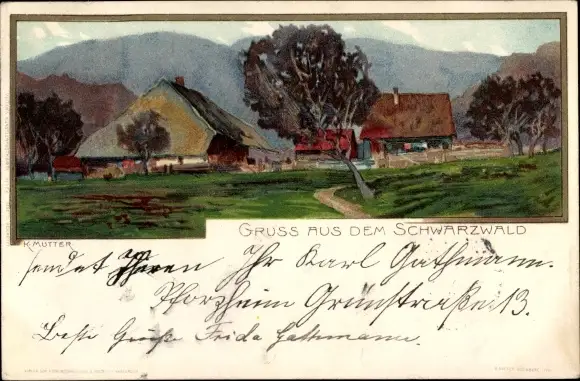 K. MUTTER
GRUSS AUS DEM SCHWARZWALD
sendet Ihnen Ihr Karl Gathmann.
Pforzheim Grünstraße 13.
Beste Grüße Frida Gathmann.